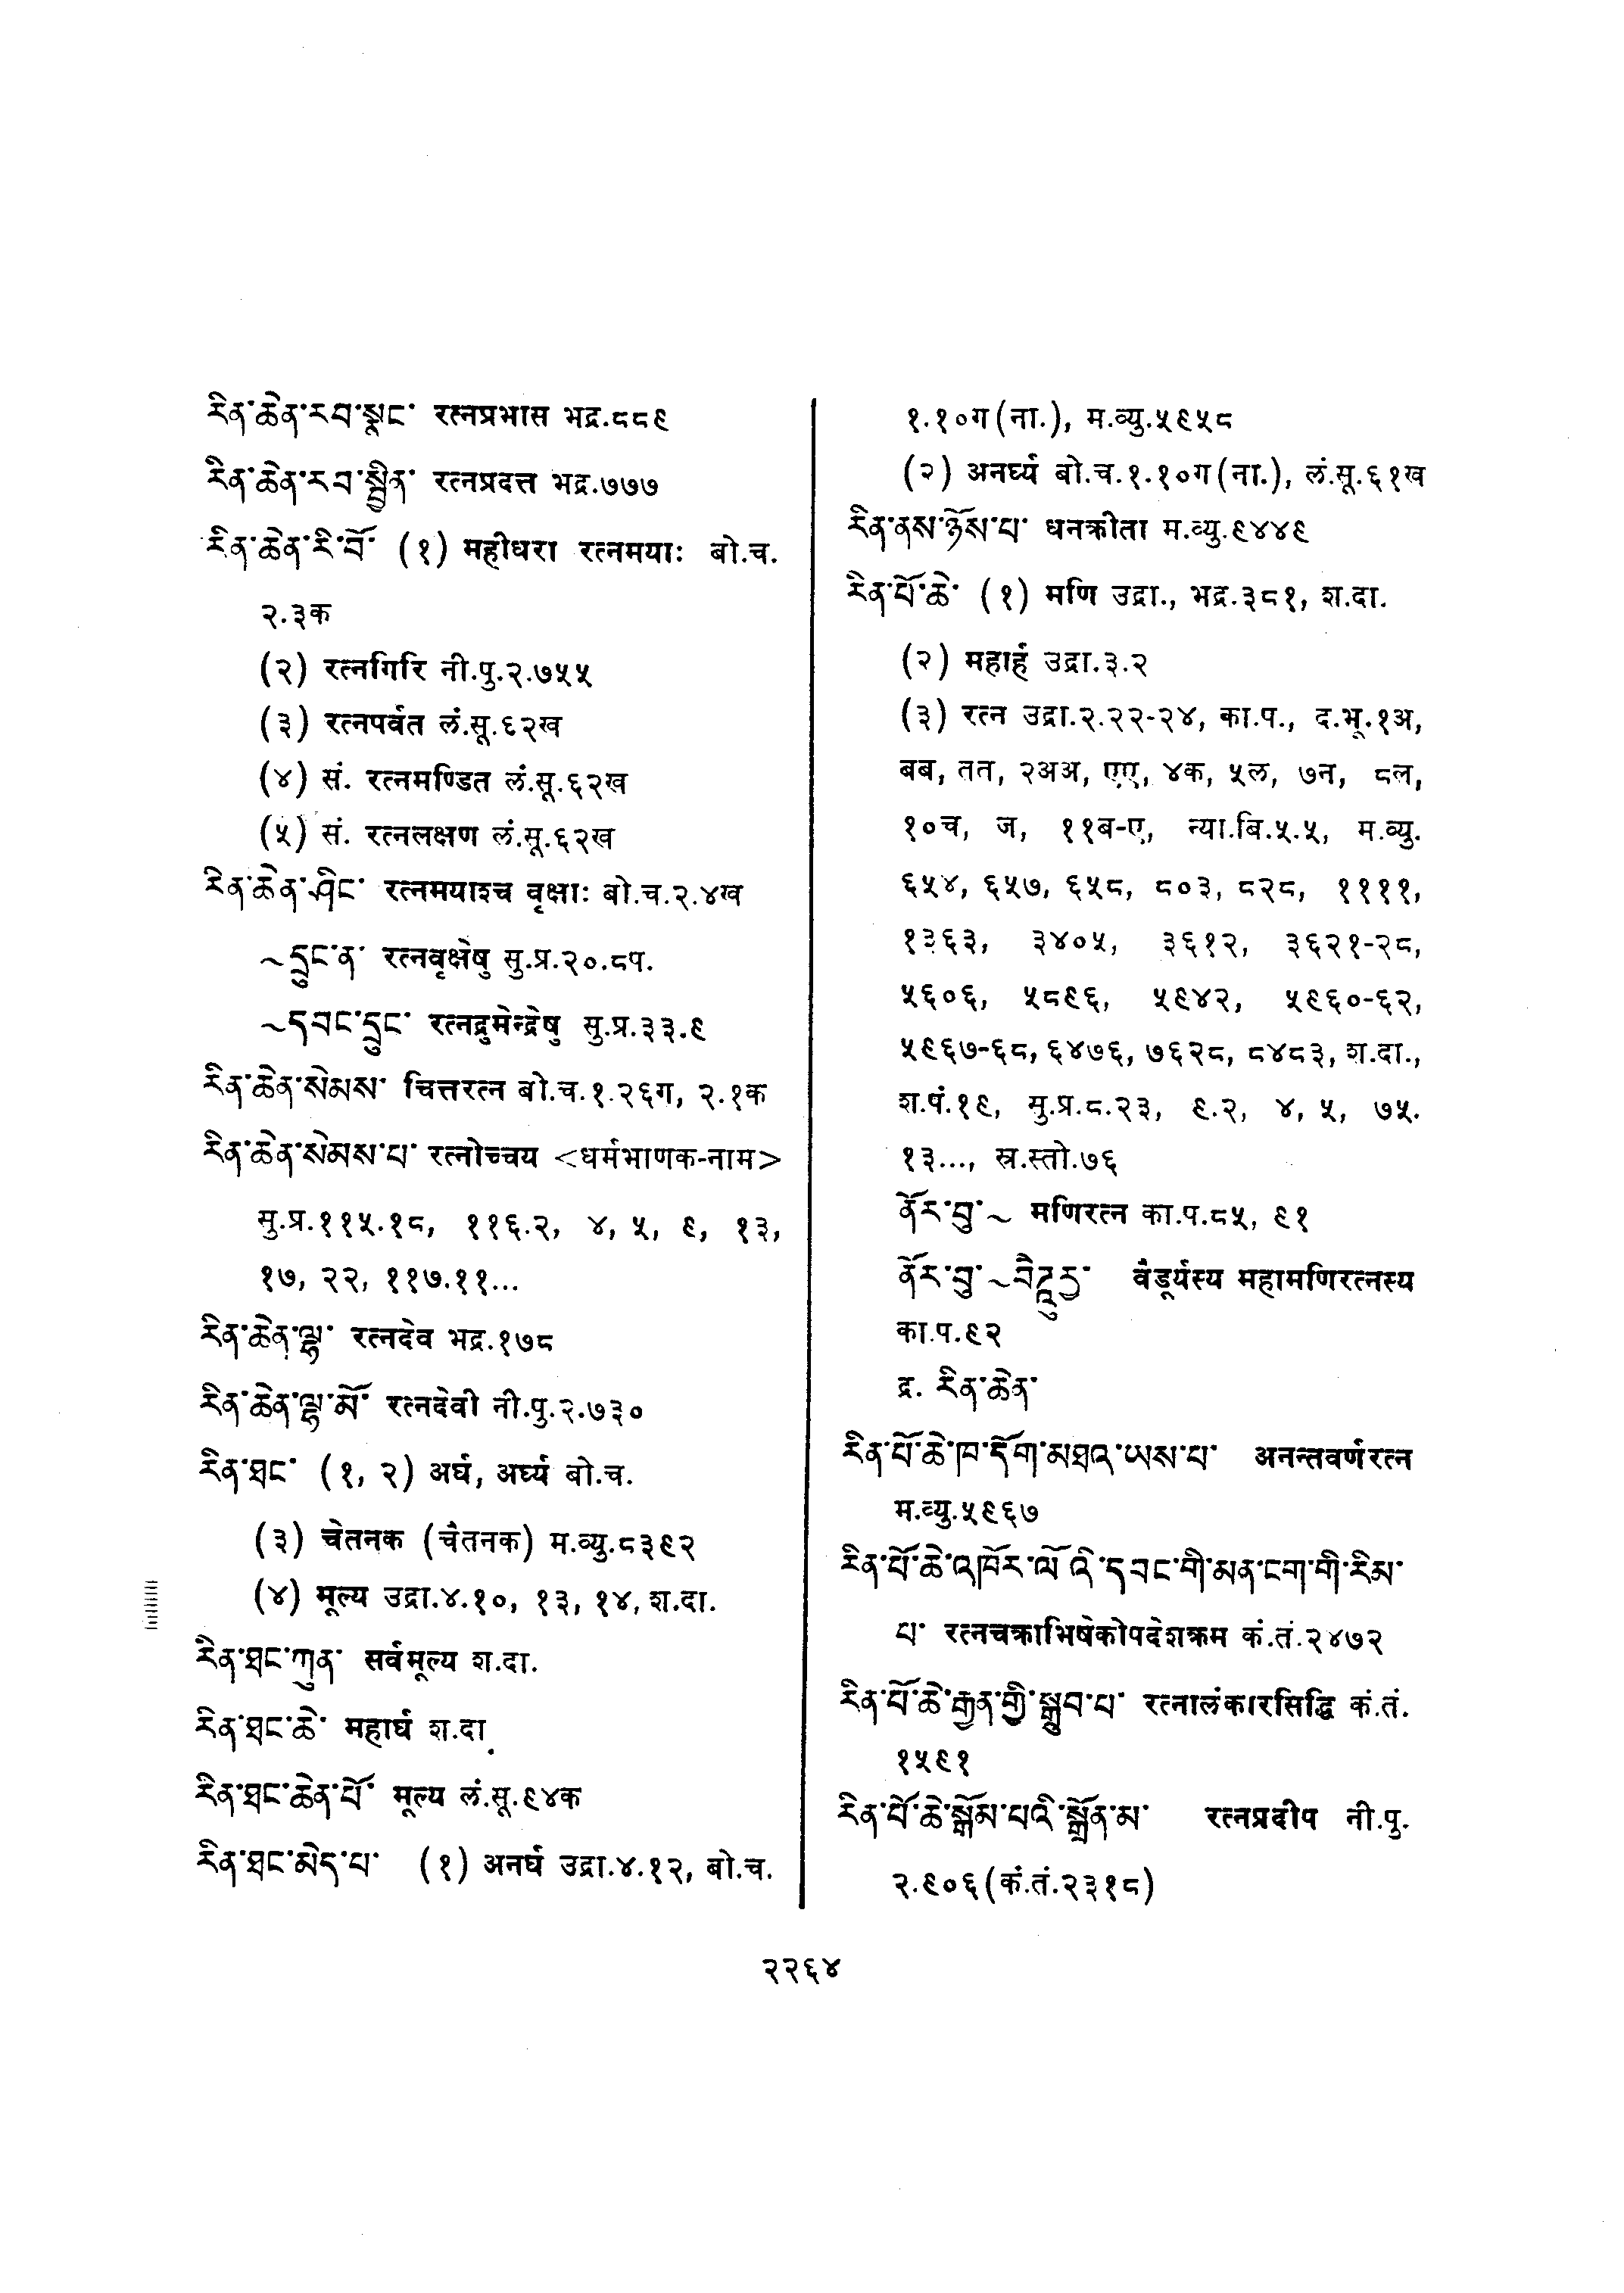 རིན་ཆེན་རབ་སྣང་ रत्नप्रभास भद्र.८८९
རིན་ཆེན་རབ་སྦྱིན་ रत्नप्रदत्त भद्र.७७७
རིན་ཆེན་རི་བོ་ (१) महीधरा रत्नमयाः बो.च.
२.३क
(२) रत्नगिरि नी.पु.२.७५५
(३) रत्नपर्वत लं.सू.६२ख
(४) सं. रत्नमण्डित लं.सू.६२ख
(५) सं. रत्नलक्षण लं.सू.६२ख
རིན་ཆེན་ཤིང་ रत्नमयाश्च वृक्षाः बो.च.२.४ख
~དྲུང་ན་ रत्नवृक्षेषु सु.प्र.२०.८प.
~དབང་དྲུང་ रत्नद्रुमेन्द्रेषु सु.प्र.३३.९
རིན་ཆེན་སེམས་ चित्तरत्न बो.च.१.२६ग, २.१क
རིན་ཆེན་སེམས་པ་ रत्नोच्चय <धर्मभाणक-नाम>
सु.प्र.११५.१८, ११६.२, ४, ५, ९, १३,
१७, २२, ११७.११...
རིན་ཆེན་ལྷ་ रत्नदेव भद्र.१७८
རིན་ཆེན་ལྷ་མོ་ रत्नदेवी नी.पु.२.७३०
རིན་ཐང་ (१, २) अर्घ, अर्घ्य बो.च.
(३) चेतनक (चैतनक) म.व्यु.८३९२
(४) मूल्य उद्रा.४.१०, १३, १४, श.दा.
རིན་ཐང་ཀུན་ सर्वमूल्य श.दा.
རིན་ཐང་ཆེ་ महार्घ श.दा.
རིན་ཐང་ཆེན་པོ་ मूल्य लं.सू.९४क
རིན་ཐང་མེད་པ་ (१) अनर्घ उद्रा.४.१२, बो.च.
१.१०ग(ना.), म.व्यु.५९५८
(२) अनर्घ्य बो.च.१.१०ग(ना.), लं.सू.६१ख
རིན་ནས་ཉོས་པ་ धनक्रीता म.व्यु.९४४९
རིན་པོ་ཆེ་ (१) मणि उद्रा., भद्र.३८१, श.दा.
(२) महार्ह उद्रा.३.२
(३) रत्न उद्रा.२.२२-२४, का.प., द.भू.१अ,
बब, तत, २अअ, एए, ४क, ५ल, ७न, ८ल,
१०च, ज, ११ब-ए, न्या.बि.५.५, म.व्यु.
६५४, ६५७, ६५८, ८०३, ८२८, ११११,
१३६३, ३४०५, ३६१२, ३६२१-२८,
५६०६, ५८९६, ५९४२, ५९६०-६२,
५९६७-६८, ६४७६, ७६२८, ८४८३, श.दा.,
श.पं.१९, सु.प्र.८.२३, ९.२, ४, ५, ७५.
१३..., स्र.स्तो.७६
ནོར་བུ་~ मणिरत्न का.प.८५, ९१
ནོར་བུ་~བཻཌཱུརྱ་ वैडूर्यस्य महामणिरत्नस्य
का.प.९२
द्र. རིན་ཆེན་
རིན་པོ་ཆེ་ཁ་དོག་མཐའ་ཡས་པ་ अनन्तवर्णरत्न
म.व्यु.५९६७
རིན་པོ་ཆེ་འཁོར་ལོ་འི་དབང་གི་མན་ངག་གི་རིམ་
པ་ रत्नचक्राभिषेकोपदेशक्रम कं.तं.२४७२
རིན་པོ་ཆེ་རྒྱན་གྱི་སྒྲུབ་པ་ रत्नालंकारसिद्धि कं.तं.
१५९१
རིན་པོ་ཆེ་སྒོམ་པའི་སྒྲོན་མ་ रत्नप्रदीप नी.पु.
२.९०६(कं.तं.२३१८)
२२६४